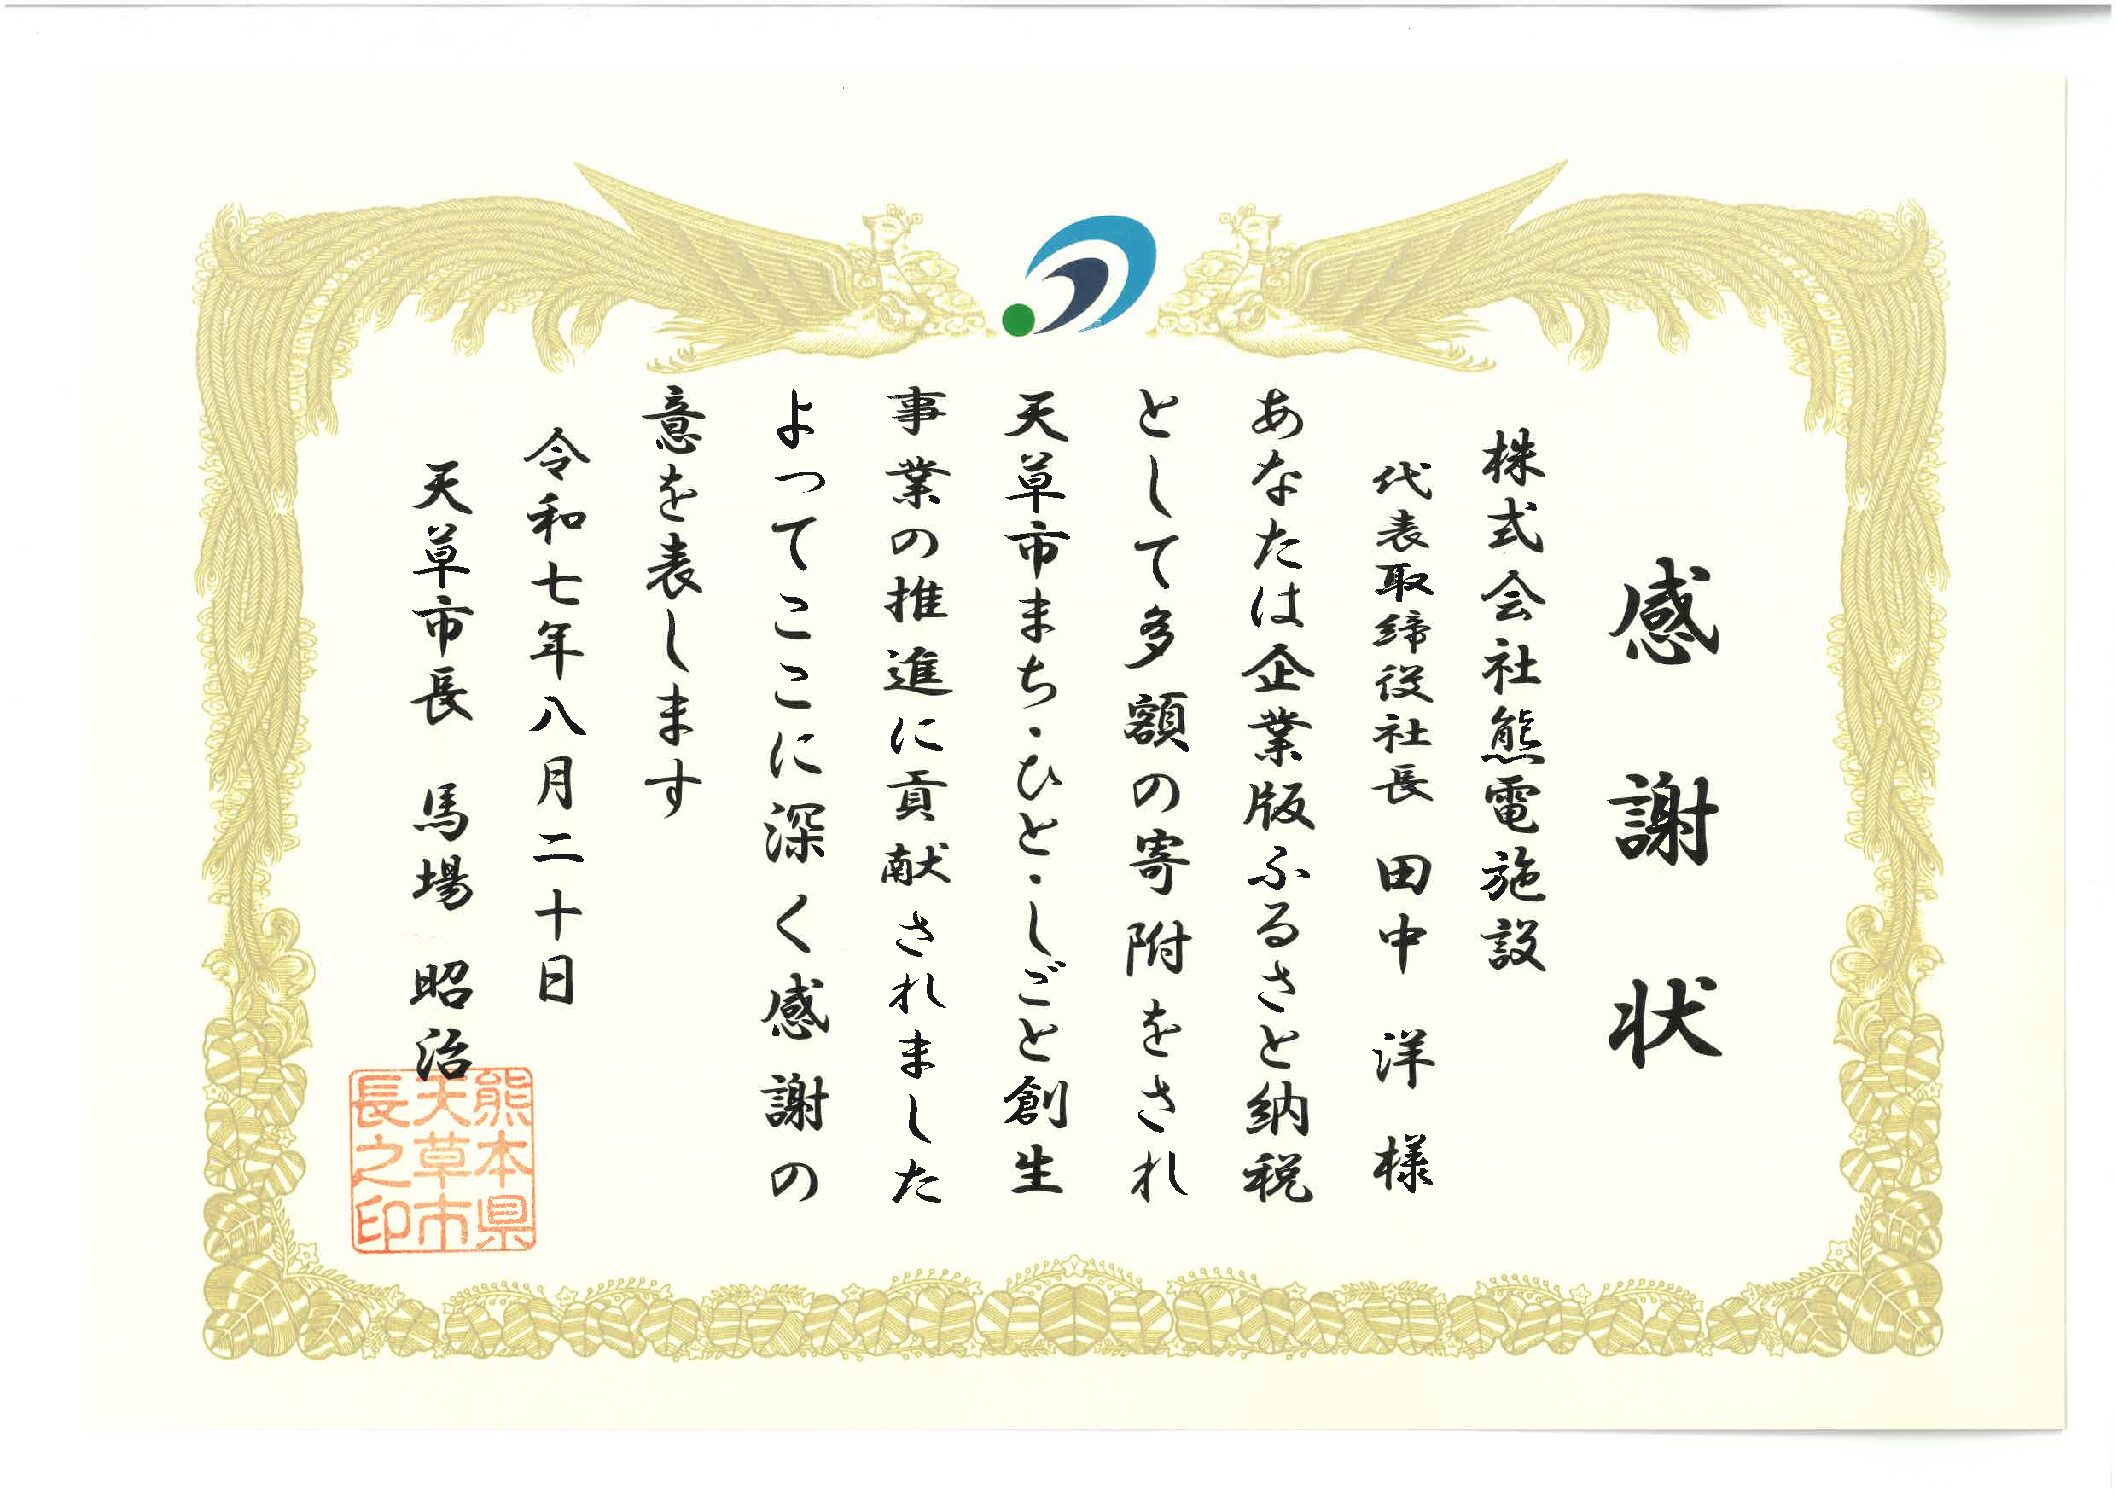 感謝状
株式会社熊電施設
代表取締役社長 田中 洋 様
あなたは企業版ふるさと納税
として多額の寄附をされ
天草市まち・ひと・しごと創生
事業の推進に貢献されました
よってここに深く感謝の
意を表します
令和七年八月二十日
天草市長 馬場 昭治
熊本県
天草市
長之印